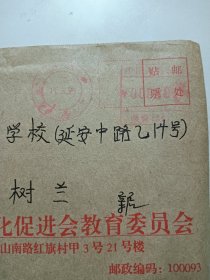 贴邮
票处
学校(延安中路乙14号)
树兰
化促进会教育委员会
山南路红旗村甲3号21号楼
邮政编码:100093